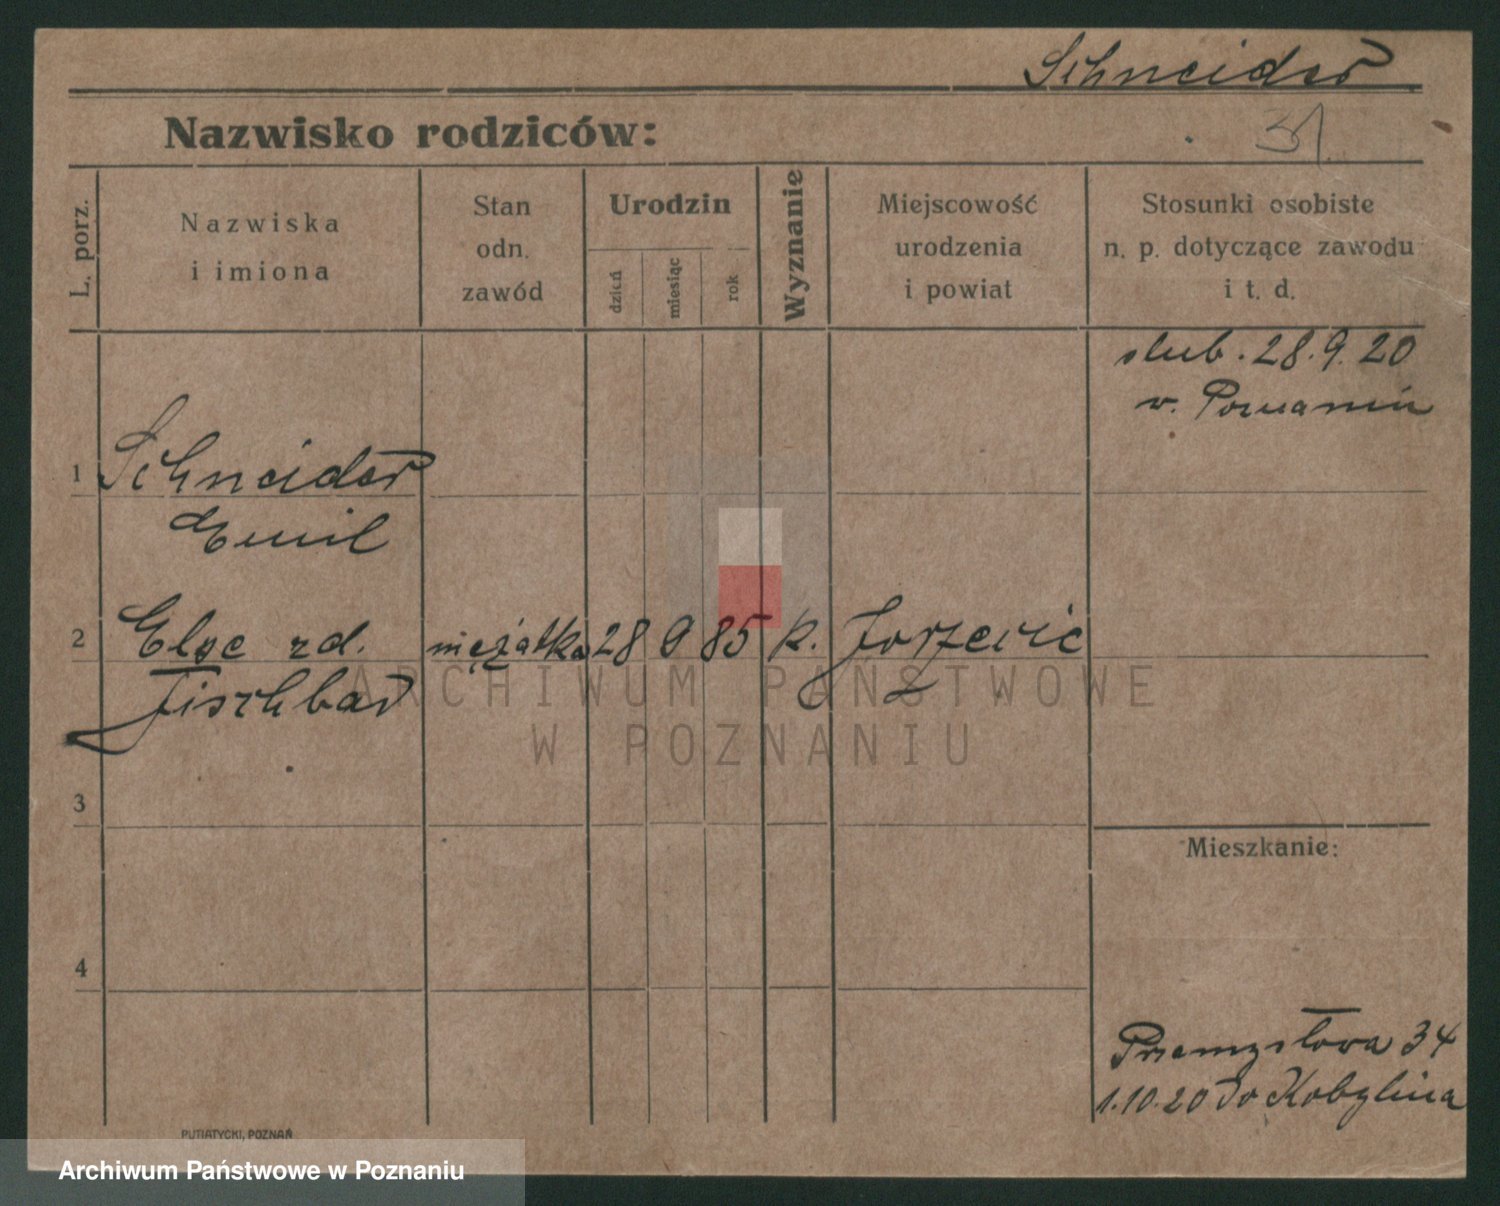 Schneider
Nazwisko rodziców:
31.
L. porz.
Nazwiska
i imiona
Stan
odn.
zawód
Urodzin
dzień
miesiąc
rok
Wyznanie
Miejscowość
urodzenia
i powiat
Stosunki osobiste
n. p. dotyczące zawodu
i t. d.
slub. 28.9.20
w. Poznaniu
1 Schneider
Emil
2 Else zd. mężatka 28 9 85 k. Jorzewic
Fischbad
3
Mieszkanie:
4
Przemysłowa 34
1.10.20 do Kobylina
PUTIATYCKI, POZNAŃ
ARCHIWUM PAŃSTWOWE
W POZNANIU
Archiwum Państwowe w Poznaniu